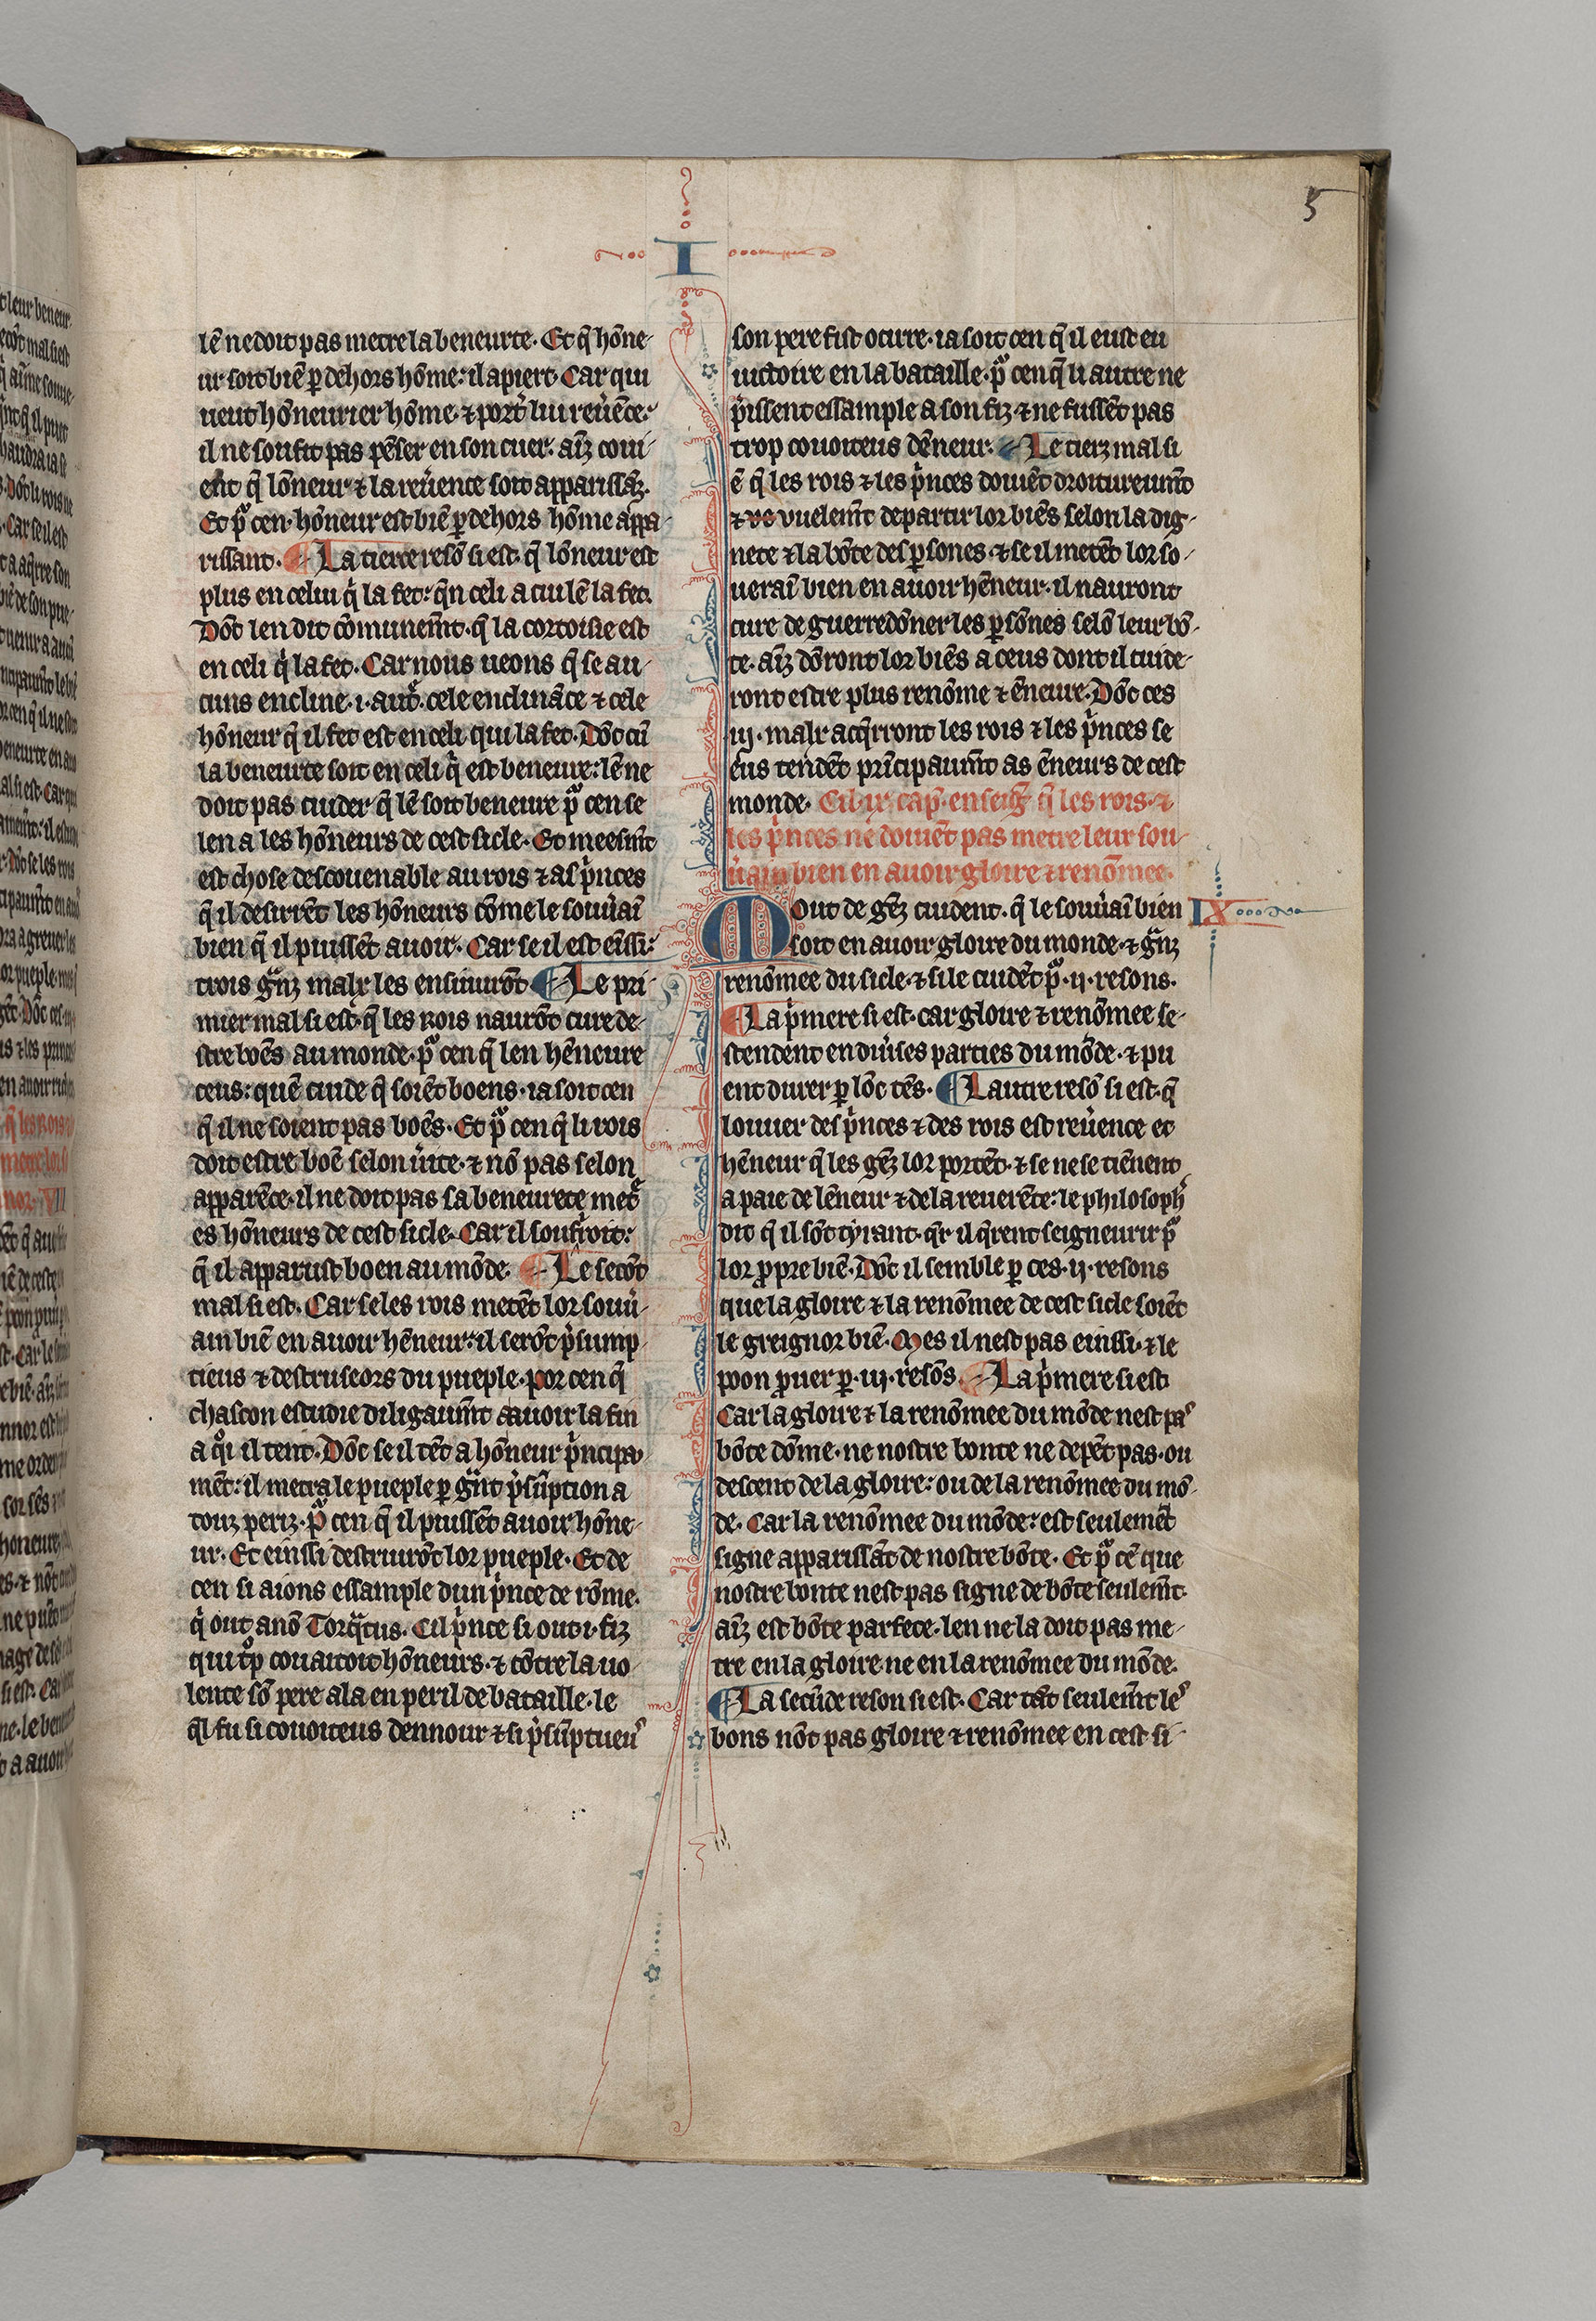 5
I
lē ne doit pas metre la beneurte. Et q̄ hōne-
ur soit biē ꝑ dehors hōme: il apiert. Car qui
ueut hōneurer hōme. ⁊ port̉ lui reu̾ēce:
il ne soufit pas pēser en son cuer. aīz coui-
ent q̄ lōneur ⁊ la reu̾ence soit apparissāz.
Et p̊ cen. hōneur est biē ꝑ dehors hōme appa-
rissant. La tierce resō si est. q̄ lōneur est
plus en celui q̍ la fet: q̄n celi a cui lē la fet.
Dōt len dit cōmunem̄t. q̄ la cortoisie est
en celi q̍ la fet. Car nous ueons q̄ se au-
cuns encline .i. aut̾. cele enclināce ⁊ cele
hōneur q̄ il fet est en celi qui la fet. Dōt cū
la beneurte soit en celi q̍ est beneure: lē ne
doit pas cuider q̄ lē soit beneure p̊ cen se
len a les hōneurs de cest siecle. Et meesm̄t
est chose descouenable au rois ⁊ as p̍nces
q̄ il desirrēt les hōneurs cōme le souu̾aī
bien q̄ il puissēt auoir. Car se il est eīssi:
trois g̾nz malx les ensiuurōt. Le pri-
mier mal si est. q̄ les rois naurōt cure de-
stre boēs au monde. p̊ cen q̄ len hēneure
ceus: quē cuide q̄ soiēt boens. ia soit cen
q̄ il ne soient pas boēs. Et p̊ cen q̄ li rois
doit estre boē selon u̾ite. ⁊ nō pas selon
apparēce. il ne doit pas sa beneurete met̾
es hōneurs de cest siecle. Car il soufiroit:
q̄ il apparust boen au mōde. Le secōt
mal si est. Car se les rois metēt lor souu̾-
ain biē en auoir hēneur: il serōt p̾sump-
tieus ⁊ destruseors du pueple. por cen q̄
chascon estudie diligaum̄t a auoir la fin
a q̊i il tent. Dōc se il tēt a hōneur p̍ncipa-
mēt: il metra le pueple ꝑ g̾nt p̾sūption a
touz periz. p̊ cen q̄ il puissēt auoir hōne-
ur. Et einssi destruirōt lor pueple. Et de
cen si aions essample dun p̍nce de rōme.
q̍ out a nō Torq̾tus. Cil p̍nce si out .i. fiz
qui t̊p couaitoit hōneurs. ⁊ cōtre la uo-
lente sō pere ala en peril de bataille. le
q̄l fu si couoiteus dennour ⁊ si p̾sūptueu᷒
son pere fist ocirre. ia soit cen q̄ il eust eu
uictoire en la bataille. p̊ cen q̄ li autre ne
p̍issent essample a son fiz ⁊ ne fussēt pas
trop couoiteus dēneur. Le tierz mal si
ē q̄ les rois ⁊ les p̍nces doiuēt droitureum̄t
⁊ vo vuelem̄t departir lor biēs selon la dig-
nete ⁊ la bōte des ꝑsones. ⁊ se il metēt lor so-
ueraī bien en auoir hēneur. il nauront
cure de guerredōner les ꝑsōnes selō leur bō-
te. aīz dōront lor biēs a ceus dont il cuide-
ront estre plus renōme ⁊ ēneure. Dōt ces
iij. malx acq̄rront les rois ⁊ les p̍nces se
eus tendēt prīcipaum̄t as ēneurs de cest
monde. Cil .ix. cap̄. enseig̅ q̄ les rois. ⁊
les p̍nces ne doiuēt pas metre leur sou-
u̾ain bien en auoir gloire ⁊ renōmee.
Mout de gēz cuident. q̄ le souu̾aī bien
IX
soit en auoir gloire du monde. ⁊ g̾nz
renōmee du siecle. ⁊ si le cuidēt p̊ .ij. resons.
La p̍mere si est. car gloire ⁊ renōmee se-
stendent en diu̾ses parties du mōde. ⁊ pu
ent durer ꝑ lōc tēs. Lautre resō si est. q̄
louuer des p̍nces ⁊ des rois est reu̾ence et
hēneur q̄ les gēz lor portēt. ⁊ se ne se tiēnent
a paie de lēneur ⁊ de la reuerēce: le philosoph̾
dit q̄ il sōt tyrant. q̾r il q̄rent seigneurir p̊
lor ꝓpre biē. Dōt il semble ꝑ ces .ij. resons
que la gloire ⁊ la renōmee de cest siecle soiēt
le greignor biē. Mes il nest pas einssi. ⁊ le
poon ꝓuer ꝑ .iij. resōs. La p̍mere si est
Car la gloire ⁊ la renōmee du mōde nest pa᷒
bōte dōme. ne nostre bonte ne depēt pas. ou
descent de la gloire: ou de la renōmee du mō-
de. Car la renōmee du mōde: est seulemēt
signe apparissāt de nostre bōte. Et p̊ cē que
nostre bonte nest pas signe de bōte seulem̄t.
aīz est bōte parfete. len ne la doit pas me-
tre en la gloire ne en la renōmee du mōde.
La secūde reson si est. Car tāt seulem̄t le᷒
bons nōt pas gloire ⁊ renōmee en cest si-